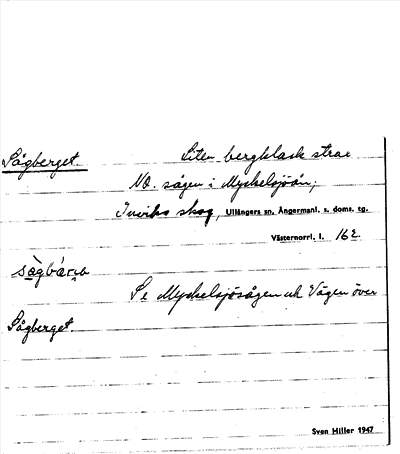 Sågberget. Liten bergklack strax
NO. sågen i Myckelsjöån;
Inviks skog, Ullångers sn. Ångermanl. s. doms. tg.
Västernorrl. l. 16
Se Myckelsjösågen och Vägen över
Sågberget.
Sven Hiller 1947